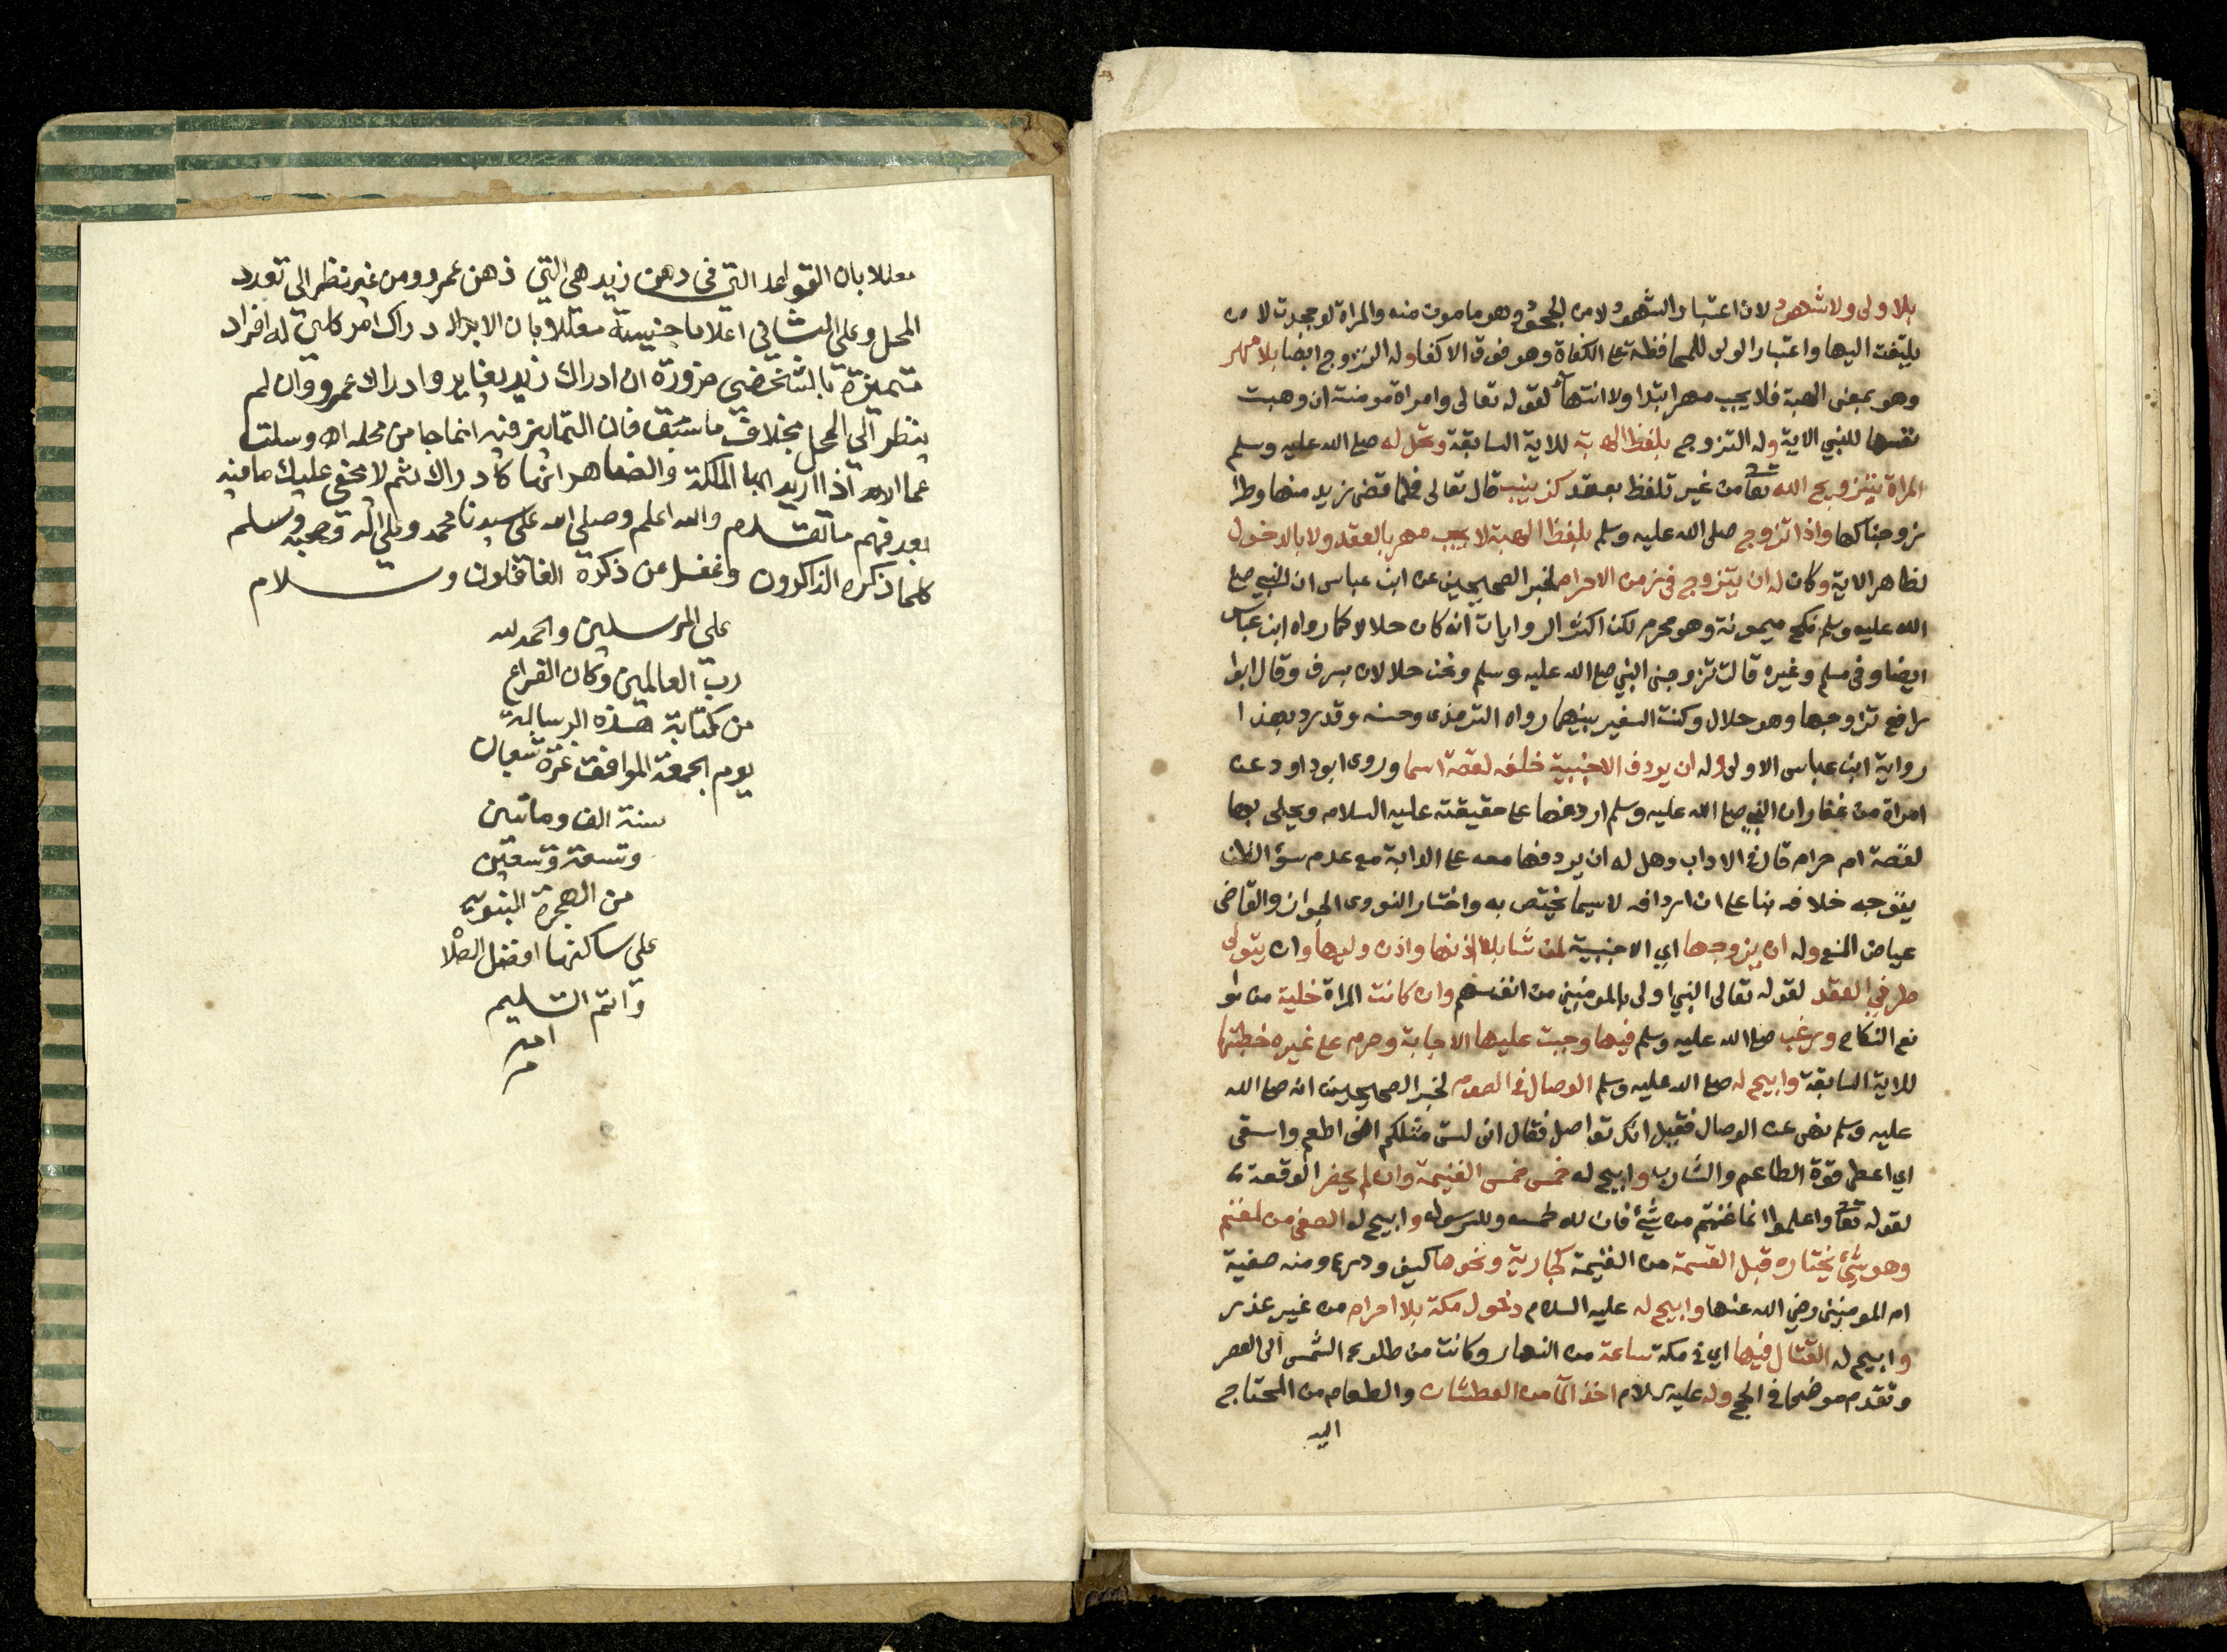 بلا ولى ولا شهود لان اعتبار الشهود لامن الجحود وهو مامون منه والمراة لو جحدت لا
يلتفت اليها واعتبار الولى للمحافظة على الكفاة وهو فوق الاكفا وله التزوج ايضا بلا مهر
وهو بمعنى الهبة فلا يجب مهر ابتدا ولا انتها لقوله تعالى وامراة مومنة ان وهبت
نفسها للنبي الاية وله التزوج بلفظ الهبة للاية السابقة وتحل له صلى الله عليه وسلم
المراة بتزويج الله تعا من غير تلفظ بعقد كزينب قال تعالى فلما قضى زيد منها وطرا
زوجناكها واذا تزوج صلى الله عليه وسلم بلفظ الهبة لا يجب مهر بالعقد ولا بالدخول
لظاهر الاية وكان له ان يتزوج فى زمن الاحرام لخبر الصحيحين عن ابن عباس ان النبي صلى
الله عليه وسلم نكح ميمونة وهو محرم لكن اكثر الروايات انه كان حلالا كما رواه ابن عباس
ايضا وفى مسلم وغيره قالت تزوجنى النبي صلى الله عليه وسلم ونحن حلالان بسرف وقال ابوا
رافع تزوجها وهو حلال وكنت السفير بينهما رواه الترمذى وحسنه وقد رد بهذا
رواية ابن عباس الاولى وله ان يردف الاجنبية خلفه لقصة اسما وروى ابوداود عن
امراة من غفار ان النبي صلى الله عليه وسلم اردفها على حقيقته عليه السلام ويخلى بها
لقصة ام حرام قال فى الاداب وهل له ان يردفها معه على الدابة مع عدم سؤ الظن
يتوجه خلافه بنا على ان اردافه لاسيما يختص به واختار النووى الجواز والقاضى
عياض المنع وله ان يزوجها اي الاجنبية لمن شا بلا اذنها واذن وليها وان يتولى
طرفي العقد لقوله تعالى النبي اولى بالمومنين من انفسهم وان كانت المراة خلية من موا
نع النكاح ورغب صلى الله عليه وسلم فيها وجبت عليها الاجابة وحرم على غيره خطبتها
للاية السابقة وابيح له صلى الله عليه وسلم الوصال فى الصوم لخبر الصحيحين انه صلى الله
عليه وسلم نهى عن الوصال فقيل انك تواصل فقال انى لست مثلكم انى اطعم واسقى
اي اعطى قوة الطاعم والشارب وابيح له خمس خمس الغنيمة وان لم يحضر الوقعة
لقوله تعا واعلموا انما غنمتم من شئ فان لله خمسه وللرسول وابيح له الصفى من المغنم
وهو شئ يختاره قبل القسمة من الغنيمة كجارية ونحوها كسيف ودرع ومنه صفية
ام المومنين رضي الله عنها وابيح له عليه السلام دخول مكة بلا احرام من غير عذر
وابيح له القتال فيها اي فى مكة ساعة من النهار وكانت من طلوع الشمس الى العصر
وتقدم موضحا فى الحج وله عليه سلام اخذ الما من العطشان والطعام من المحتاج
اليه
معللا بان القواعد التى فى دهن زيد هى التي ذهن عمرو ومن غير نظر الى تعدد
المحل وعلى الثانى اعلاما جنيسة معللا بان الادراك امر كلي له افراد
متميزة بالشخضى ضرورة ان ادراك زيد يغاير وادراك عمرو وان لم
ينظر الى المحل بخلاف ماسبق فان التمايز فيه انما جا من محله اه وسلت
عما اذا اريد بها الملكة والضاهر انها كادراك ثم لا يخفى عليك مافيه
بعد فهم ماتقدم والله اعلم وصلى الله على سيدنا محمد وعلى اله وصحبه وسلم
كلما ذكره الذاكرون وغفل عن ذكره الغافلون وسلام
على المرسلين والحمد لله
رب العالمين وكان الفراغ
من كتابة هذه الرسالة
يوم الجمعة الموافق غرة شعبان
سنة الف وماتين
وتسعة وتسعين
من الهجرة النبوية
على ساكنها افضل الصلا
واتم التسليم
امين
م